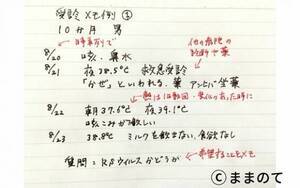 受診メモ例 ③
10か月 男
時系列で
8/20 咳、鼻水
他の病院の診断や薬
8/21 夜38.5℃ 救急受診
「かぜ」といわれる。薬 アンヒバ坐薬
熱は1日数回・変化のあった時に
8/22 朝37.6℃ 夜39.1℃
咳こみが激しい
8/23 38.8℃ ミルクを飲まない、食欲なし
希望することもメモ
質問:RSウイルスかどうか
©ままのて